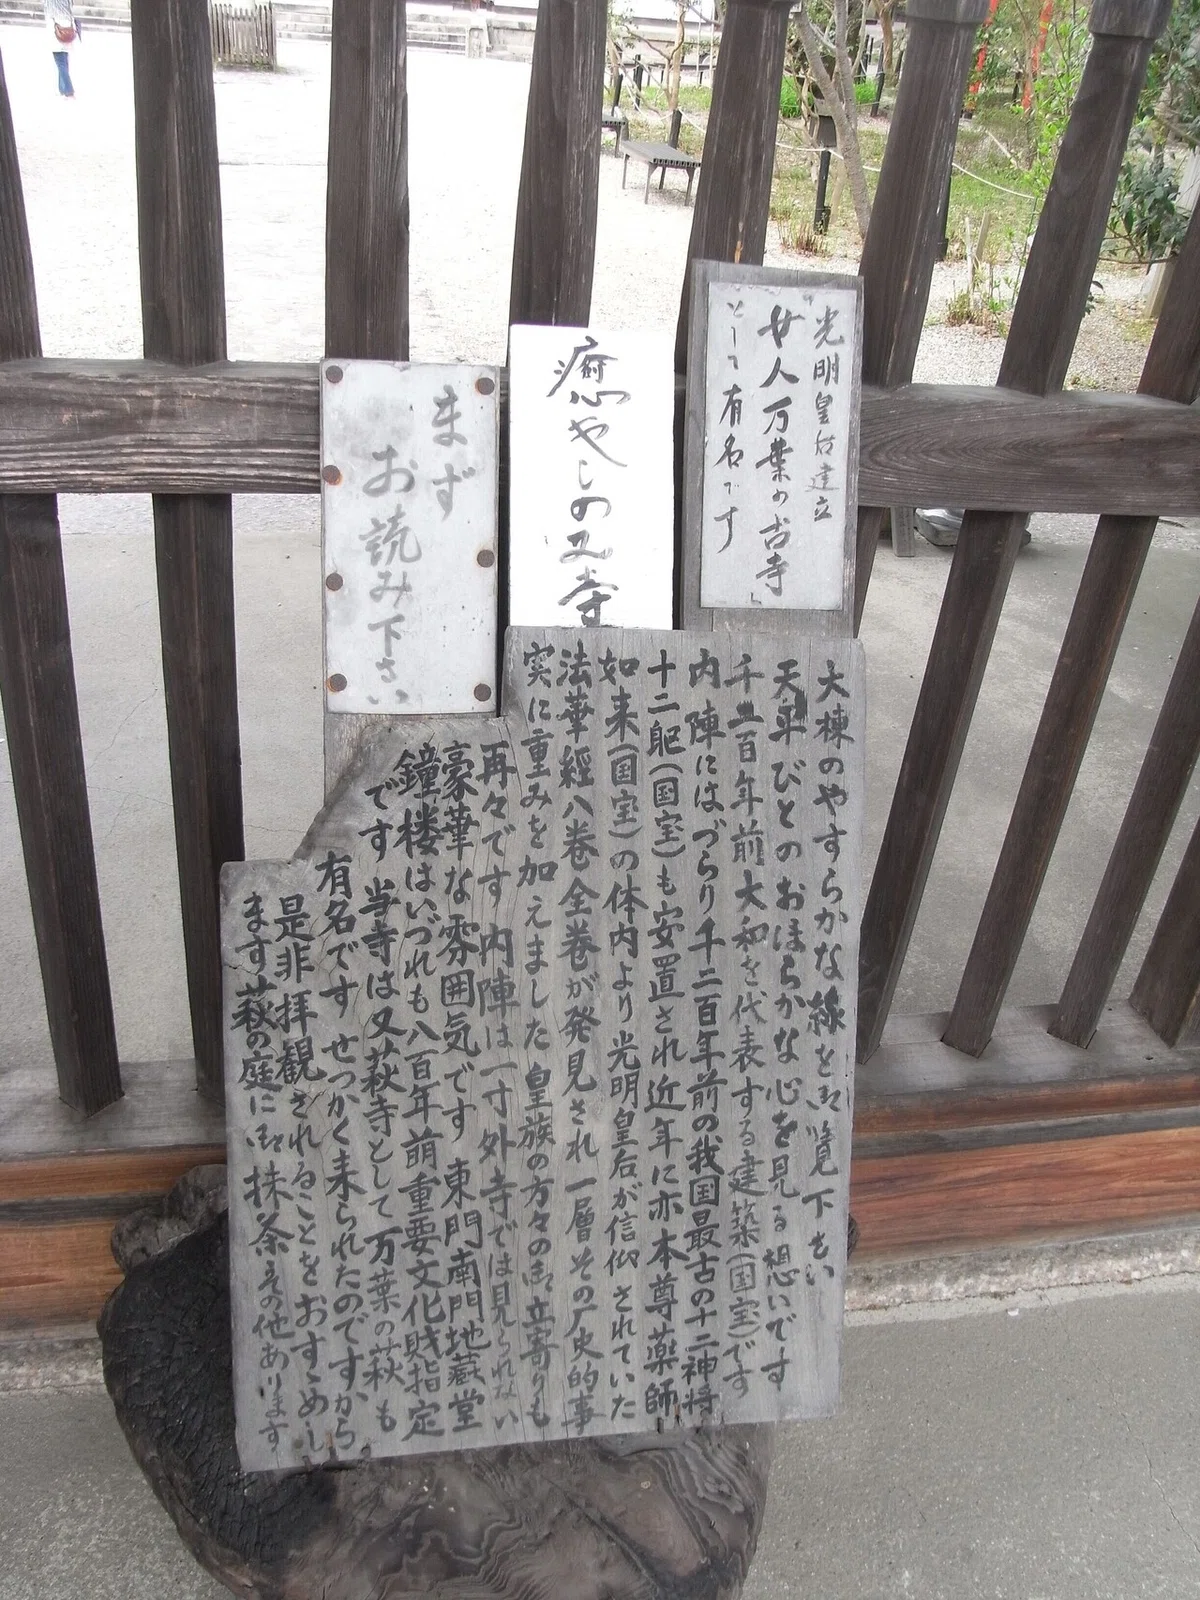 光明皇后建立
「女人万葉の古寺」
として有名です
癒やしの又寺
まず
お読み下さい
大棟のやすらかな線を御覧下さい
天平びとのおほらかな心を見る想いです
千二百年前大和を代表する建築(国宝)です
内陣にはづらり千二百年前の我国最古の十二神将
十二躯(国宝)も安置され近年に亦本尊薬師
如来(国宝)の体内より光明皇后が信仰されていた
法華經八巻全巻が発見され一層その厂史的事
実に重みを加えました皇族の方々の御立寄りも
再々です内陣は一寸外寺では見られない
豪華な雰囲気です 東門南門地蔵堂
鐘楼はいづれも八百年前重要文化財指定
です 当寺は又萩寺として万葉の萩も
有名です せっかく来られたのですから
是非拝観されることをおすゝめし
ます 萩の庭に御抹茶その他あります